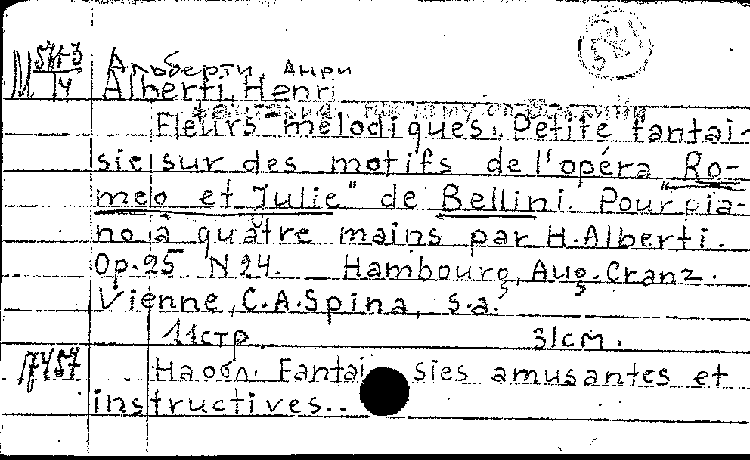 Альберти, Анри
Alberti, Henri
Fleurs mélodiques. Petite fantai-
sie sur des motifs de l'opéra "Ro-
meo et Julie" de Bellini. Pour pia-
no à quatre mains par H. Alberti.
Op. 25 N 24. _ Hambourg, Aug. Cranz.
Vienne, C.A. Spina, s.a.
11 стр. 31 см.
На обл. Fantaisies amusantes et
instructives..